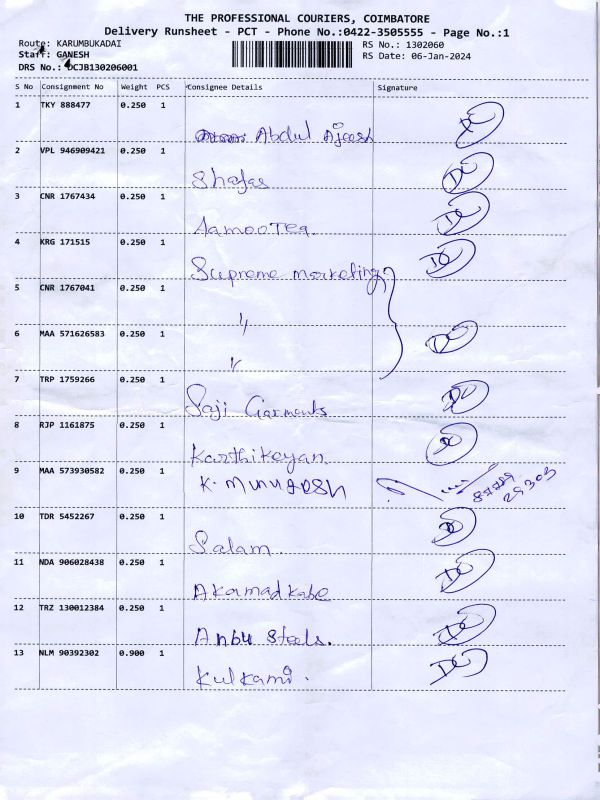 THE PROFESSIONAL COURIERS, COIMBATORE
Delivery Runsheet - PCT - Phone No.:0422-3505555 - Page No.:1
Route: KARUMBUKADAI
RS No.: 1302060
Staff: GANESH
RS Date: 06-Jan-2024
DRS No.: DCJB130206001
S No Consignment No Weight PCS Consignee Details Signature
1 TKY 888477 0.250 1
Abdul Ajeesh DC
2 VPL 946909421 0.250 1
Shafas DC
3 CNR 1767434 0.250 1
DC
4 KRG 171515 0.250 1
Supreme marketing DC
5 CNR 1767041 0.250 1
〃
6 MAA 571626583 0.250 1
〃 DC
7 TRP 1759266 0.250 1
Saji Garments DC
8 RJP 1161875 0.250 1
Karthikeyan DC
9 MAA 573930582 0.250 1
K. MURUGESH
10 TDR 5452267 0.250 1
Salam DC
11 NDA 906028438 0.250 1
DC
12 TRZ 130012384 0.250 1
Anbu Steels. DC
13 NLM 90392302 0.900 1
Kulkarni. DC